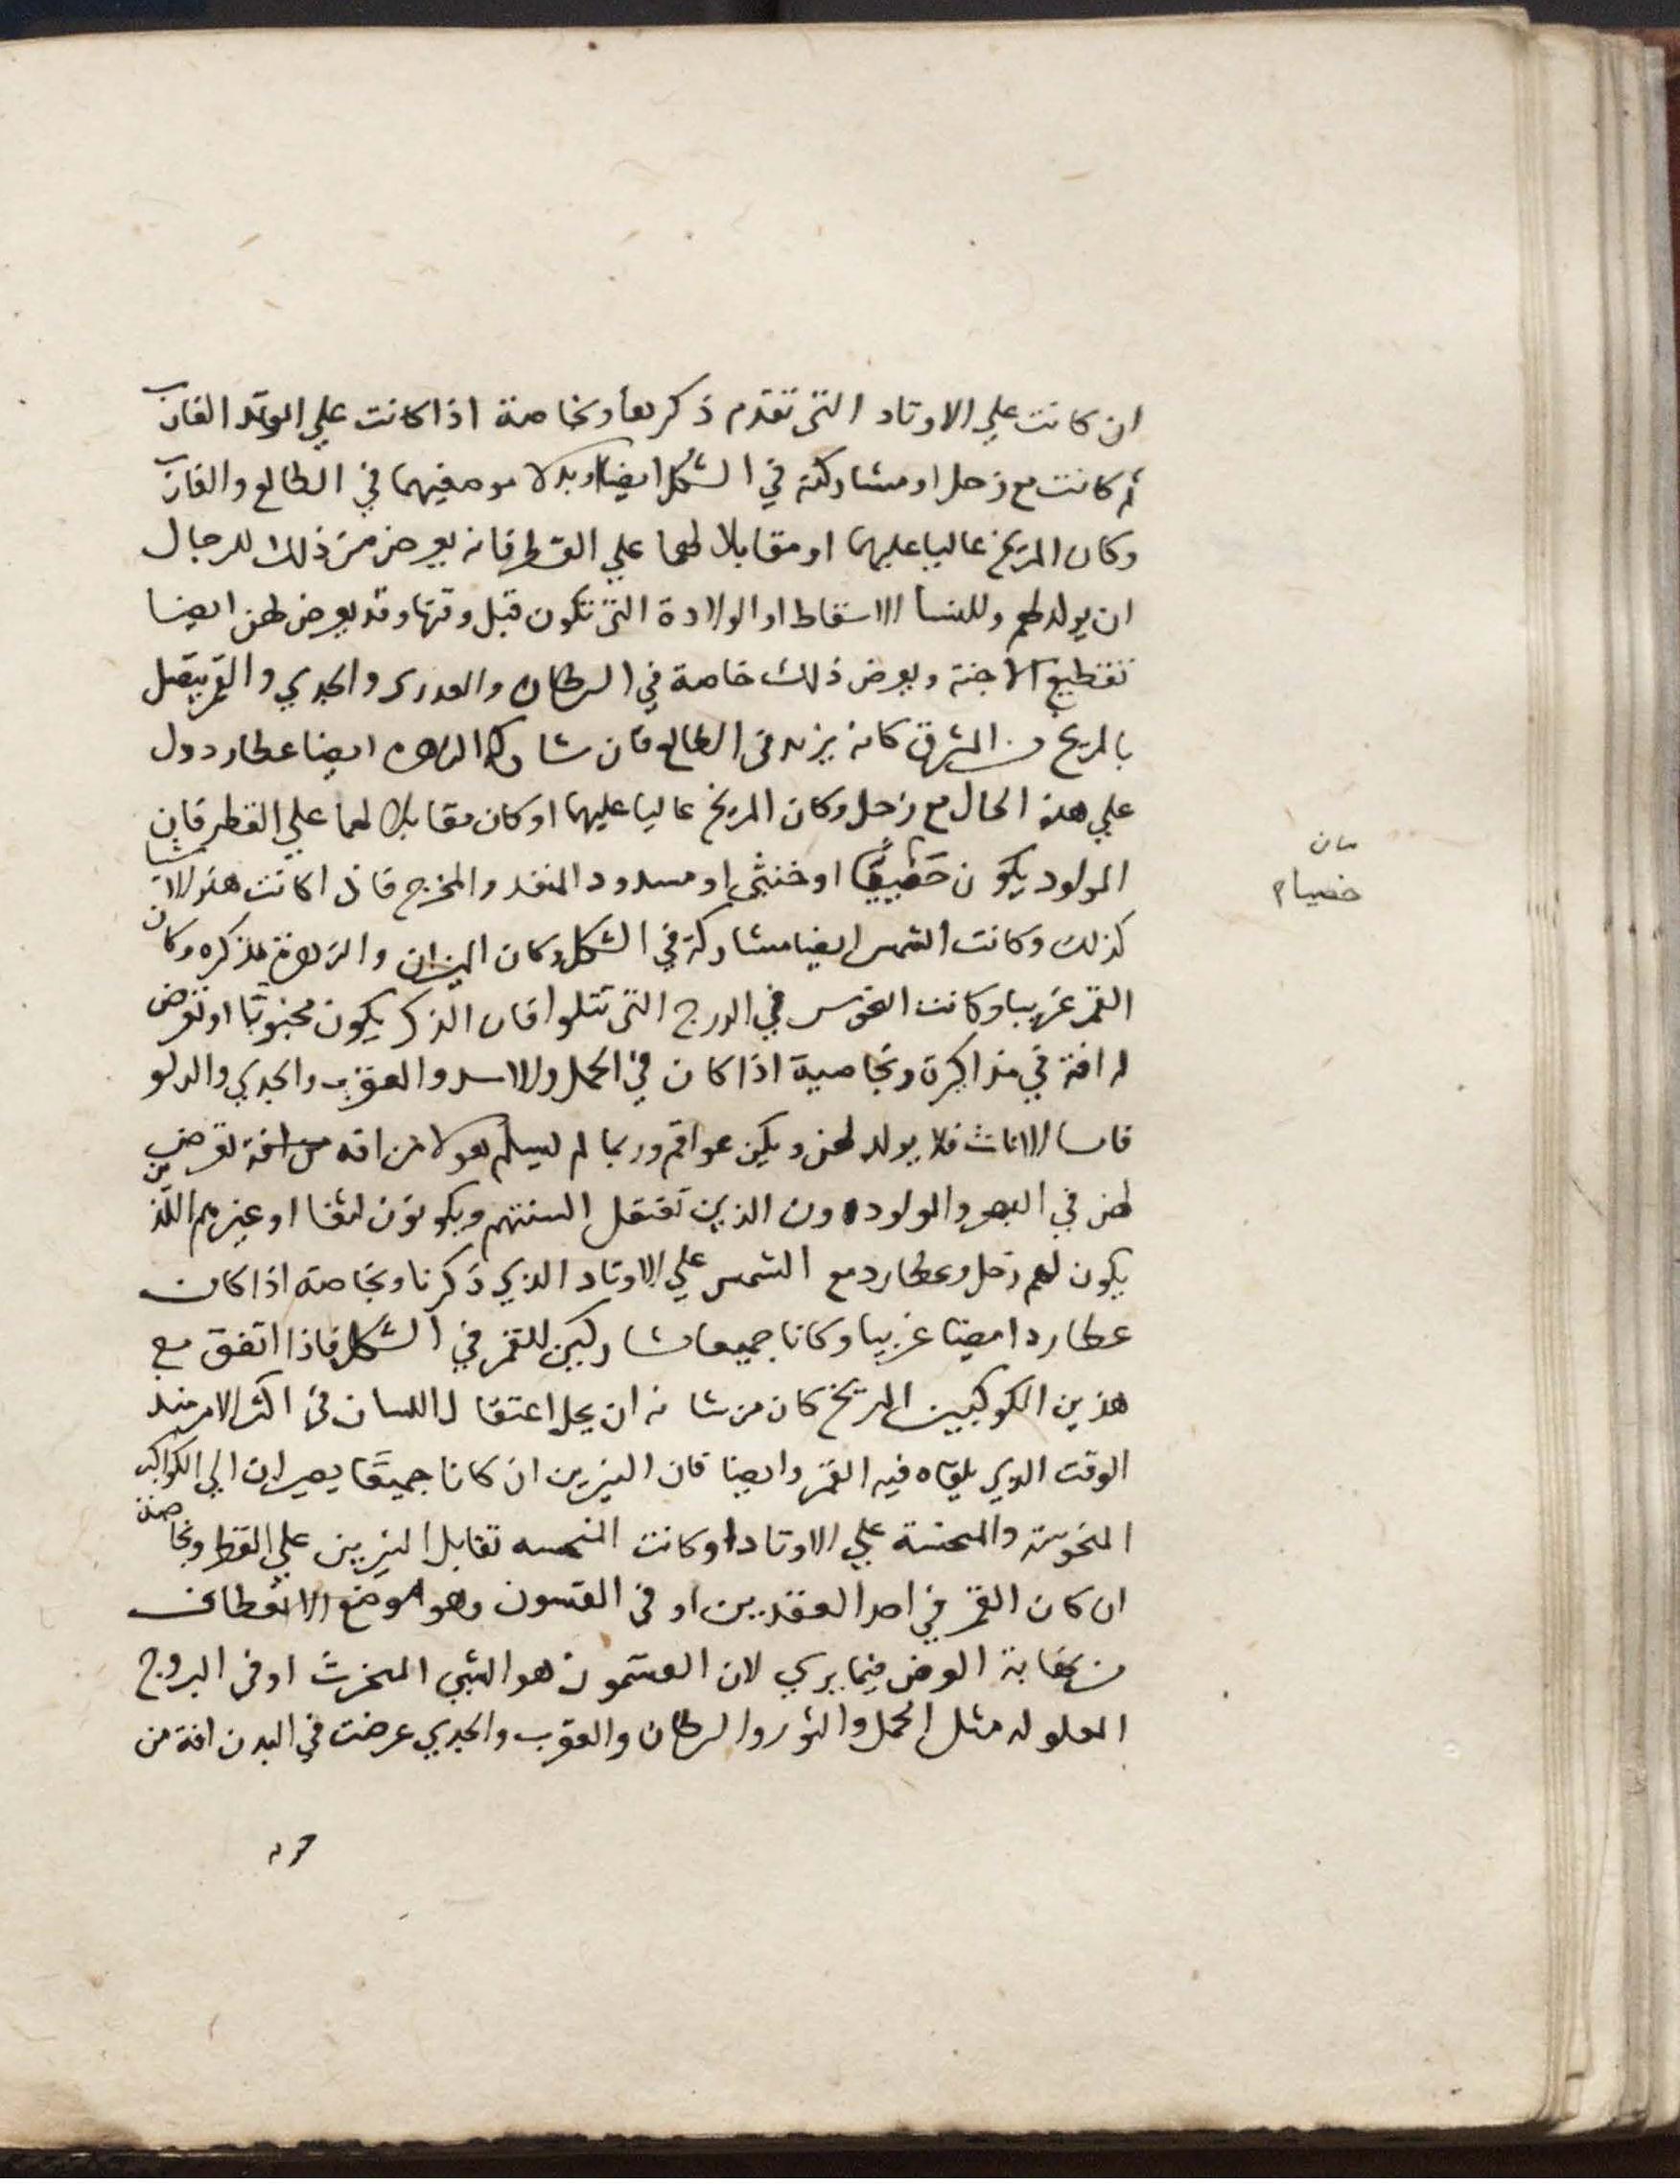 ان كانت علي الاوتاد التي تقدم ذكرها وبخاصة اذا كانت علي الوتد الغارب
ثم كانت مع زحل او مشاركته في الشكل ايضا وبدلا موضعيهما في الطالع والغارب
وكان المريخ عاليا عليهما او مقابلا لهما علي القطر فانه يعرض من ذلك للرجال
ان يولد لهم وللنسا الاسقاط او الولادة التي تكون قبل وقتها وقد يعرض لهن ايضا
تقطيع الاجنة ويعرض ذلك خاصة في السرطان والعدرى والجدي والقمر يتصل
بالمريخ من المشرق كانه يزيد في الطالع فان شارك الزهره ايضا عطارد دول
علي هذه الحال مع زحل وكان المريخ عاليا عليهما او كان مقابلا لهما علي القطر فان
المولود يكون او خنثي او مسدود المنفد والمخرج فاذا كانت هذه الاشيا
كذلك وكانت الشمس ايضا مشاركة في الشكل وكان النيران والزهرة مذكره وكان
القمر غربيا وكانت النحوس في الدرج التي تتلوا فان الذكر يكون مجبوبا او تعرض
له افة في مذاكيرة وبخاصية اذا كان في الحمل والاسد والعقرب والجدي والدلو
فاما الاناث فلا يولد لهن ويكن عواقم وربما لم يسلم هولا من افه تعرض
لهن في البصر والمولودون الذين تعتقل السنتهم ويكونون لثغا او غيرهم اللذين
يكون لهم زحل وعطارد مع الشمس علي الاوتاد الذي ذكرنا وبخاصة اذا كان
عطارد ايضا غربيا وكانا جميعا مشاركين للقمر في الشكل فاذا اتفق مع
هذين الكوكبين المريخ كان من شانه ان يحل اعتقال اللسان في اكثر الامر منذ
الوقت الذي يلقاه فيه القمر وايضا فان النيرين ان كانا جميعا يصيران الي الكواكب
المنحوسة علي الاوتاد او كانت المنحسه تقابل النيرين علي القطر وبخاصة
ان كان القمر في احد العقدين او في القسون وهو الموضع الانعطاف
من نهاية العرض فيما يري لان القسمون هو الشي المنخرث او في البروج
المعلوله مثل الحمل والثور والسرطان والعقرب والجدي عرضت في البدن افة من